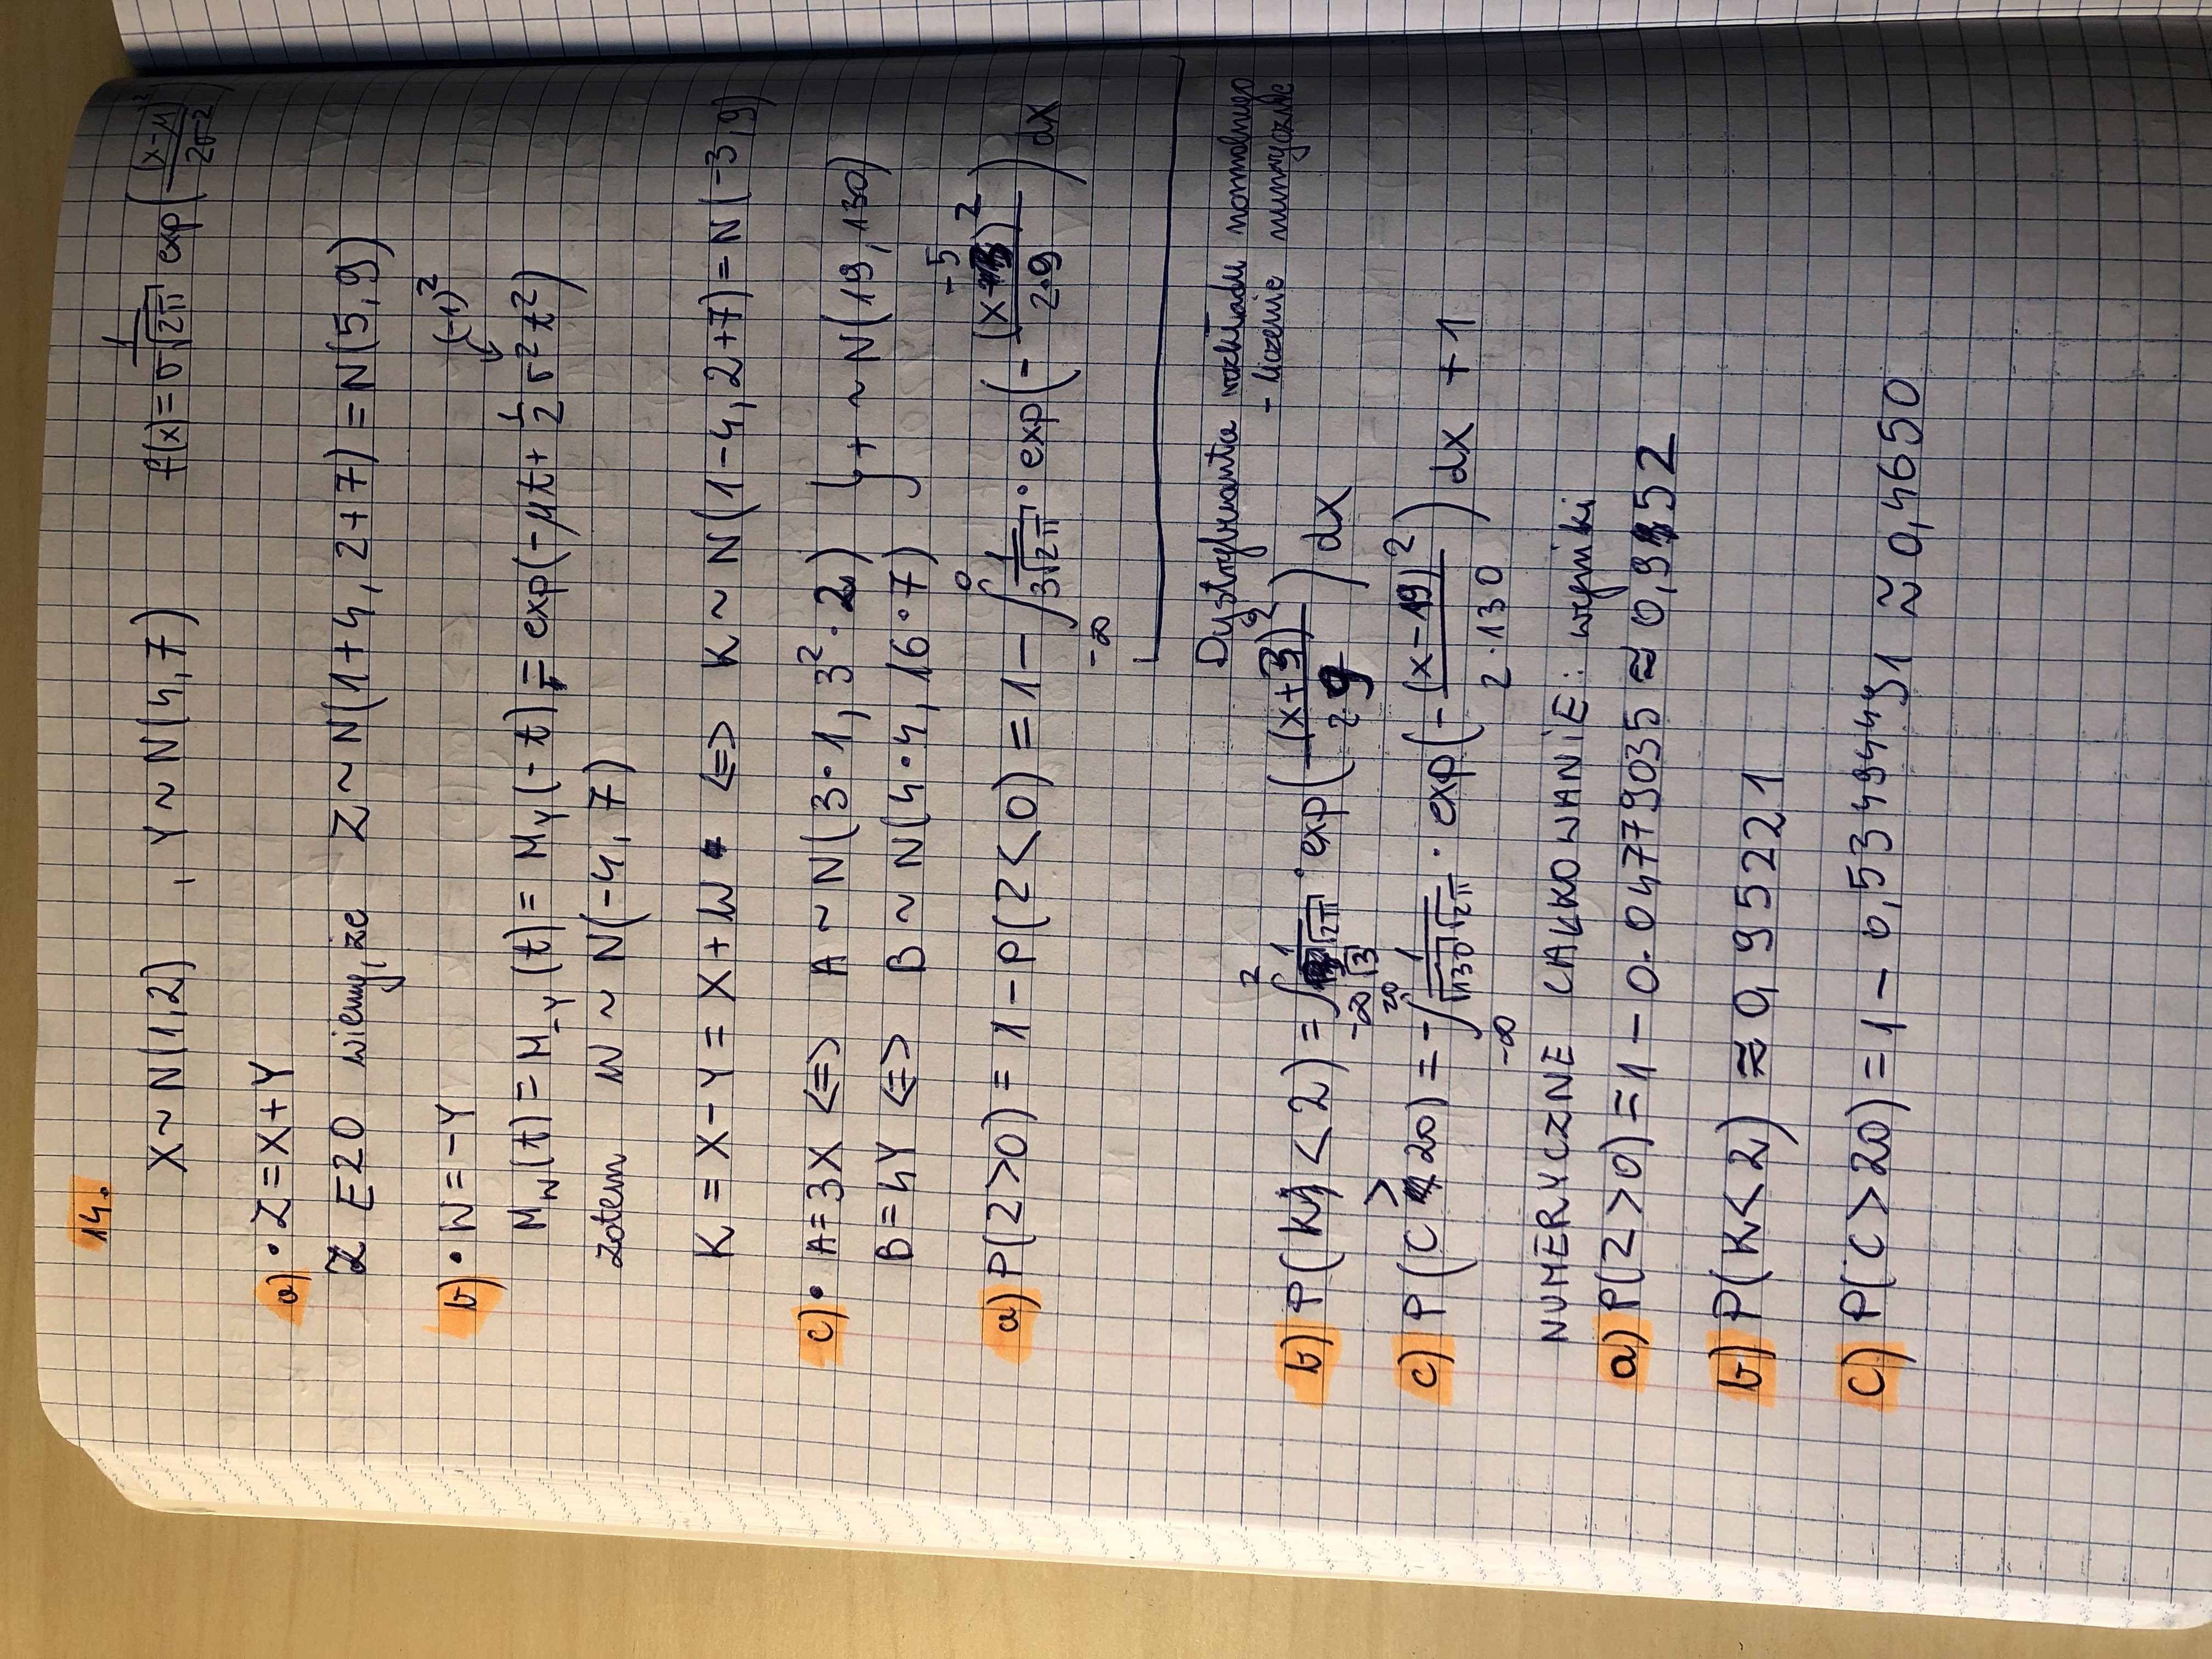 14.
X ~ N(1,2) , Y ~ N(4,7) f(x) = 1/(σ√2π) exp((x-μ)²/2σ²)
a) • Z = X + Y
Z E20 wiemy, że Z ~ N(1+4, 2+7) = N(5,9)
b) • W = -Y
(-1)²
M_W(t) = M_-Y(t) = M_Y(-t) = exp(-μt + 1/2 σ²t²)
zatem W ~ N(-4, 7)
K = X - Y = X + W <=> K ~ N(1-4, 2+7) = N(-3,9)
c) • A = 3X <=> A ~ N(3·1, 3²·2) } + ~ N(19,130)
B = 4Y <=> B ~ N(4·4, 16·7)
a) P(Z>0) = 1 - P(Z<0) = 1 - ∫_{-∞}^{0} 1/(3√2π) · exp(-(x-5)²/(2·9)) dx
Dystrybuanta rozkładu normalnego
- liczenie numeryczne
b) P(K < 2) = ∫_{-∞}^{2} 1/(√2π √3) · exp((x+3)²/(2·9)) dx
c) P(C > 20) = -∫_{-∞}^{20} 1/(√130 √2π) · exp(-(x-19)²/(2·130)) dx + 1
NUMERYCZNE CAŁKOWANIE: wyniki
a) P(Z>0) = 1 - 0.04779035 ≈ 0,952
b) P(K<2) ≈ 0,95221
c) P(C>20) = 1 - 0,534944491 ≈ 0,4650